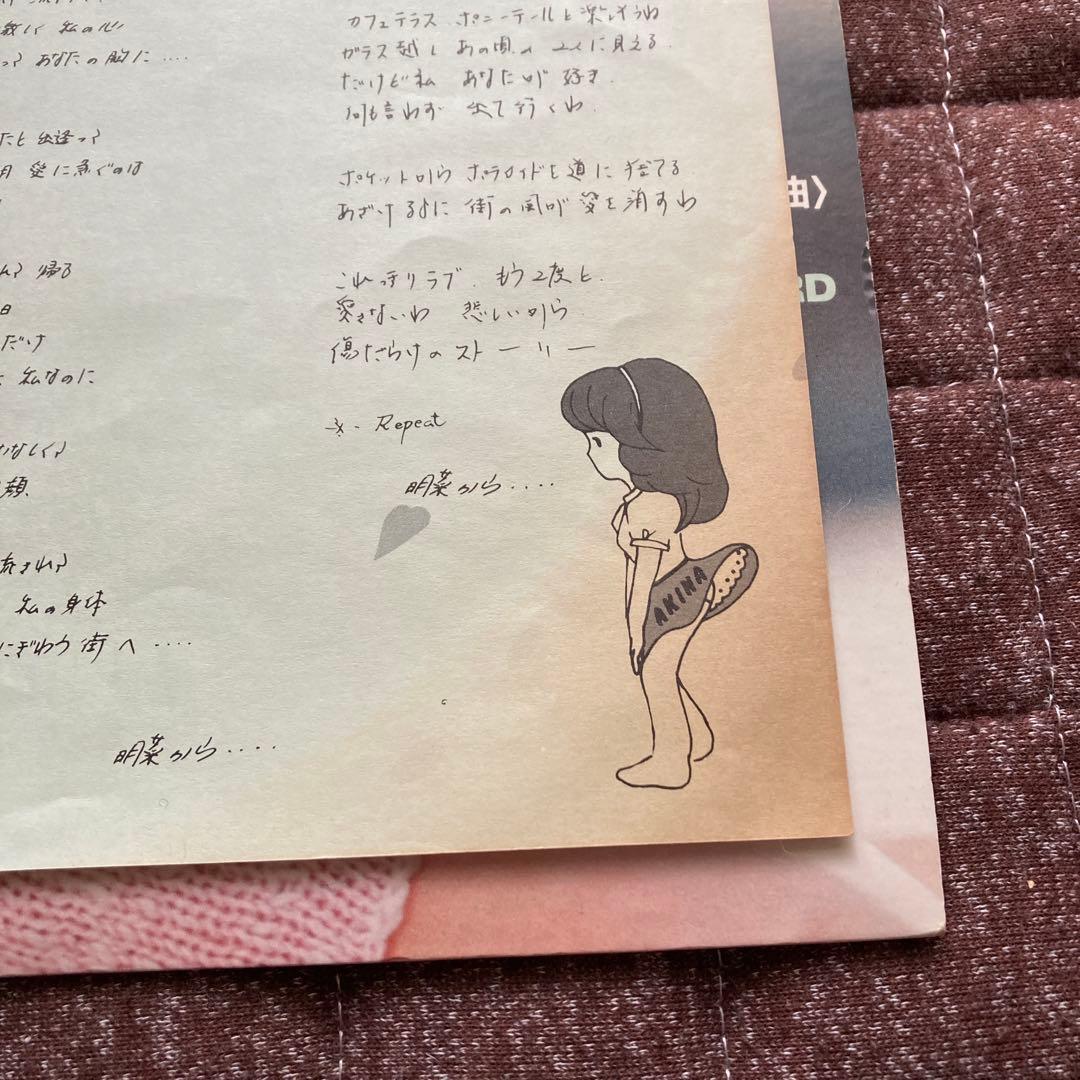 私の心
あなたの胸に‥‥
たと 出逢って
月 愛に急ぐのは
帰る
日
だけ
私なのに
かなしくて
顔
流されて
私の身体
にぎわう 街へ‥‥
明菜から‥‥
カフェテラス ポニーテールと楽しそうね
ガラス越し あの頃の 2人に見える
だけど私 あなたが 好き
何も言わず 出て行くわ
ポケットから ポラロイドを道に 捨てる
あざけるように 街の風が 愛を消すわ
これっきりラブ もう2度と
愛さないわ 悲しいから
傷だらけの ストーリー
※ Repeat
明菜から‥‥
AKINA
曲〉
RD